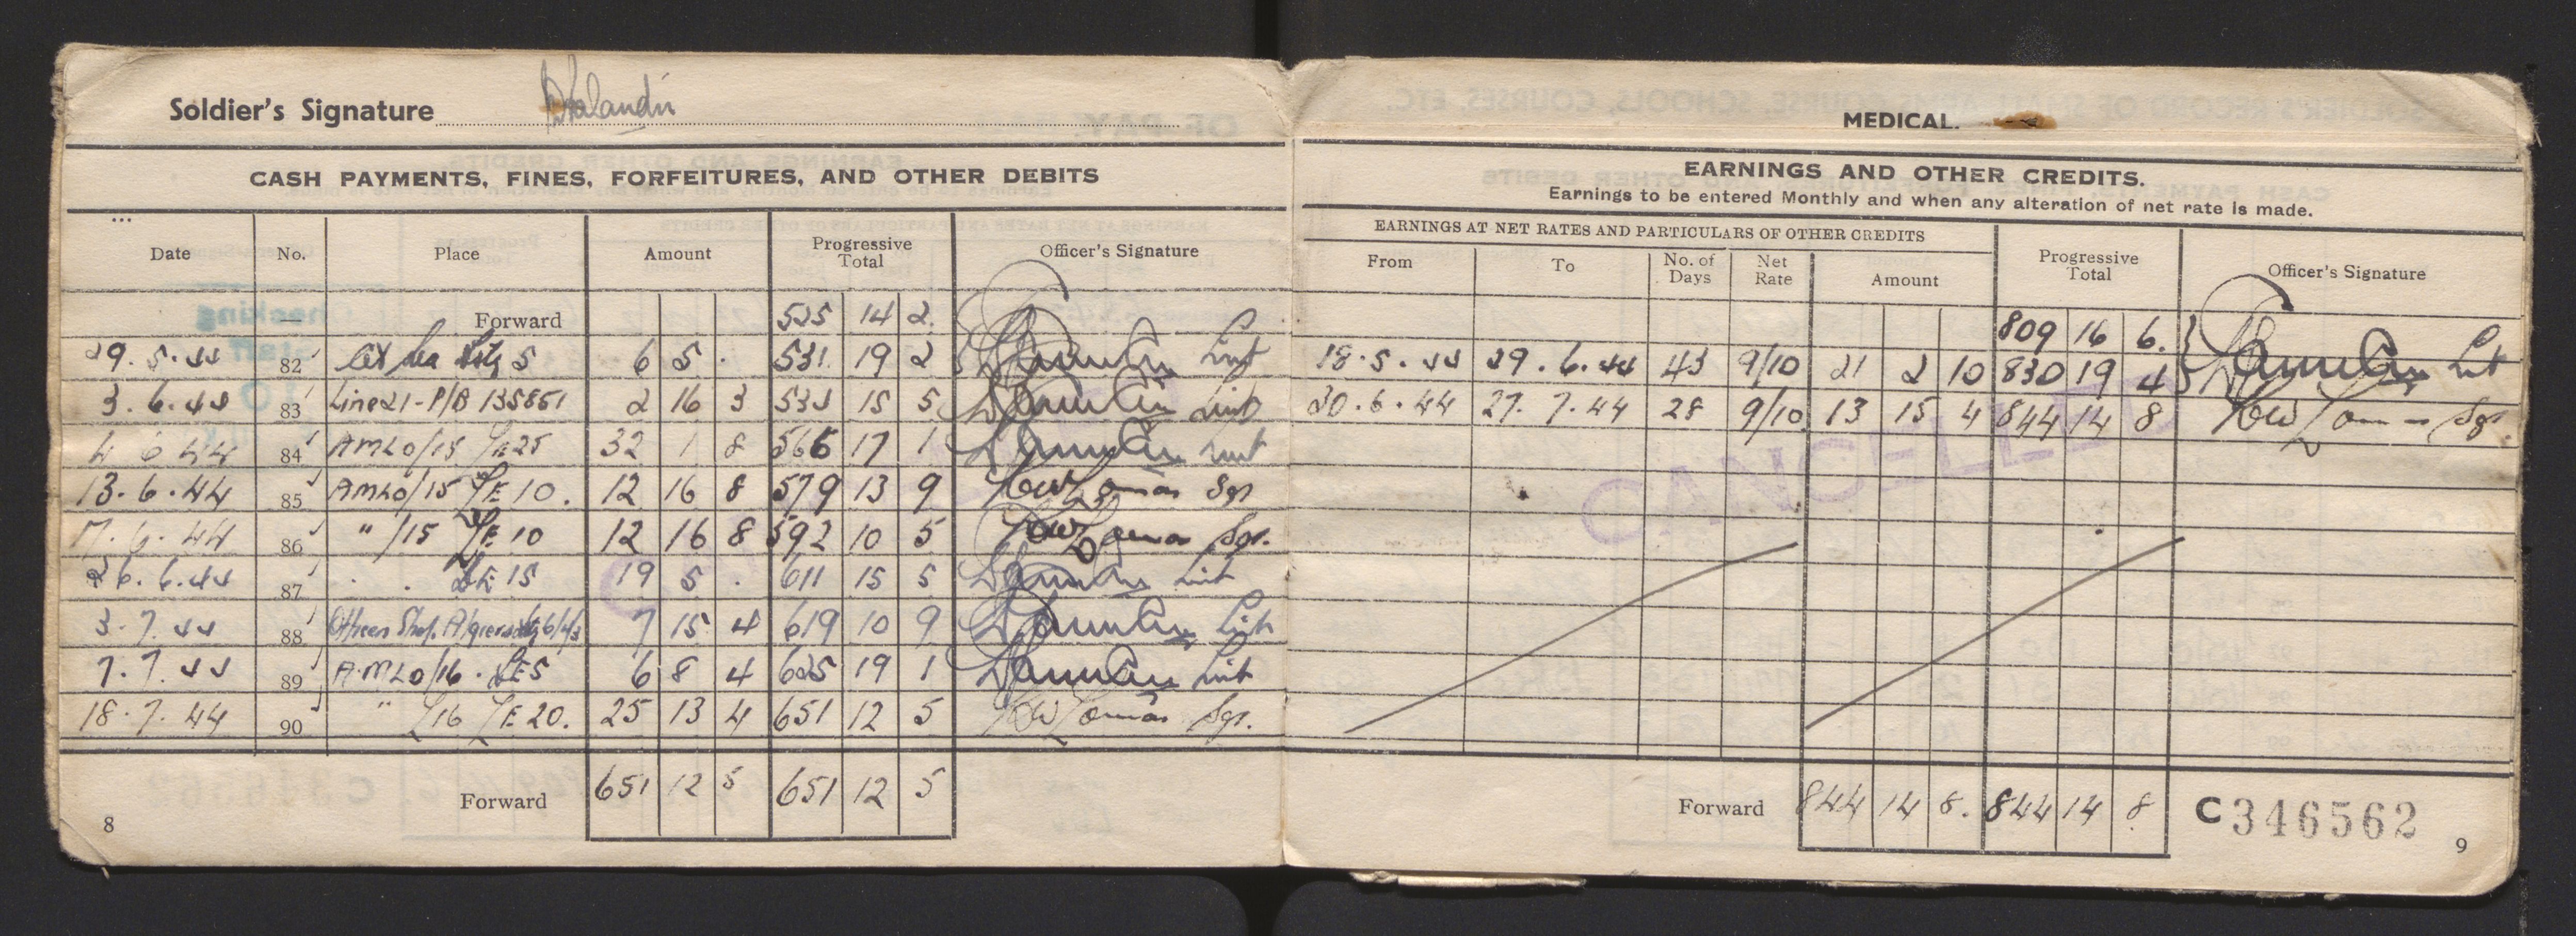 Soldier's Signature
CASH PAYMENTS, FINES, FORFEITURES, AND OTHER DEBITS
Date No. Place Amount Progressive Total Officer's Signature
— Forward 525 14 2.
29.5.44 82 5 6 5 . 531 19 2
3.6.44 83 Line 21-P/B 135851 2 16 3 534 15 5
4 6 44 84 AMLO/15 £E25 32 1 8 566 17 1
13.6.44 85 AMLO/15 £E 10. 12 16 8 579 13 9 Sgt
17.6.44 86 " /15 £E 10 12 16 8 592 10 5 Sgt.
26.6.44 87 . . £E 15 19 5 . 611 15 5
3.7.44 88 Officers Shop. Algiers 7 15 4 619 10 9
7.7.44 89 A.MLO/16. £E5 6 8 4 625 19 1
18.7.44 90 " /16 £E 20. 25 13 4 651 12 5 Sgt.
Forward 651 12 5 651 12 5
8
MEDICAL.
EARNINGS AND OTHER CREDITS.
Earnings to be entered Monthly and when any alteration of net rate is made.
EARNINGS AT NET RATES AND PARTICULARS OF OTHER CREDITS
From To No. of Days Net Rate Amount Progressive Total Officer's Signature
809 16 6.
18.5.44 29.6.44 43 9/10 21 2 10 830 19 4
30.6.44 27.7.44 28 9/10 13 15 4 844 14 8 Sgt.
CANCELLED
Forward 844 14 8. 844 14 8
C346562
9